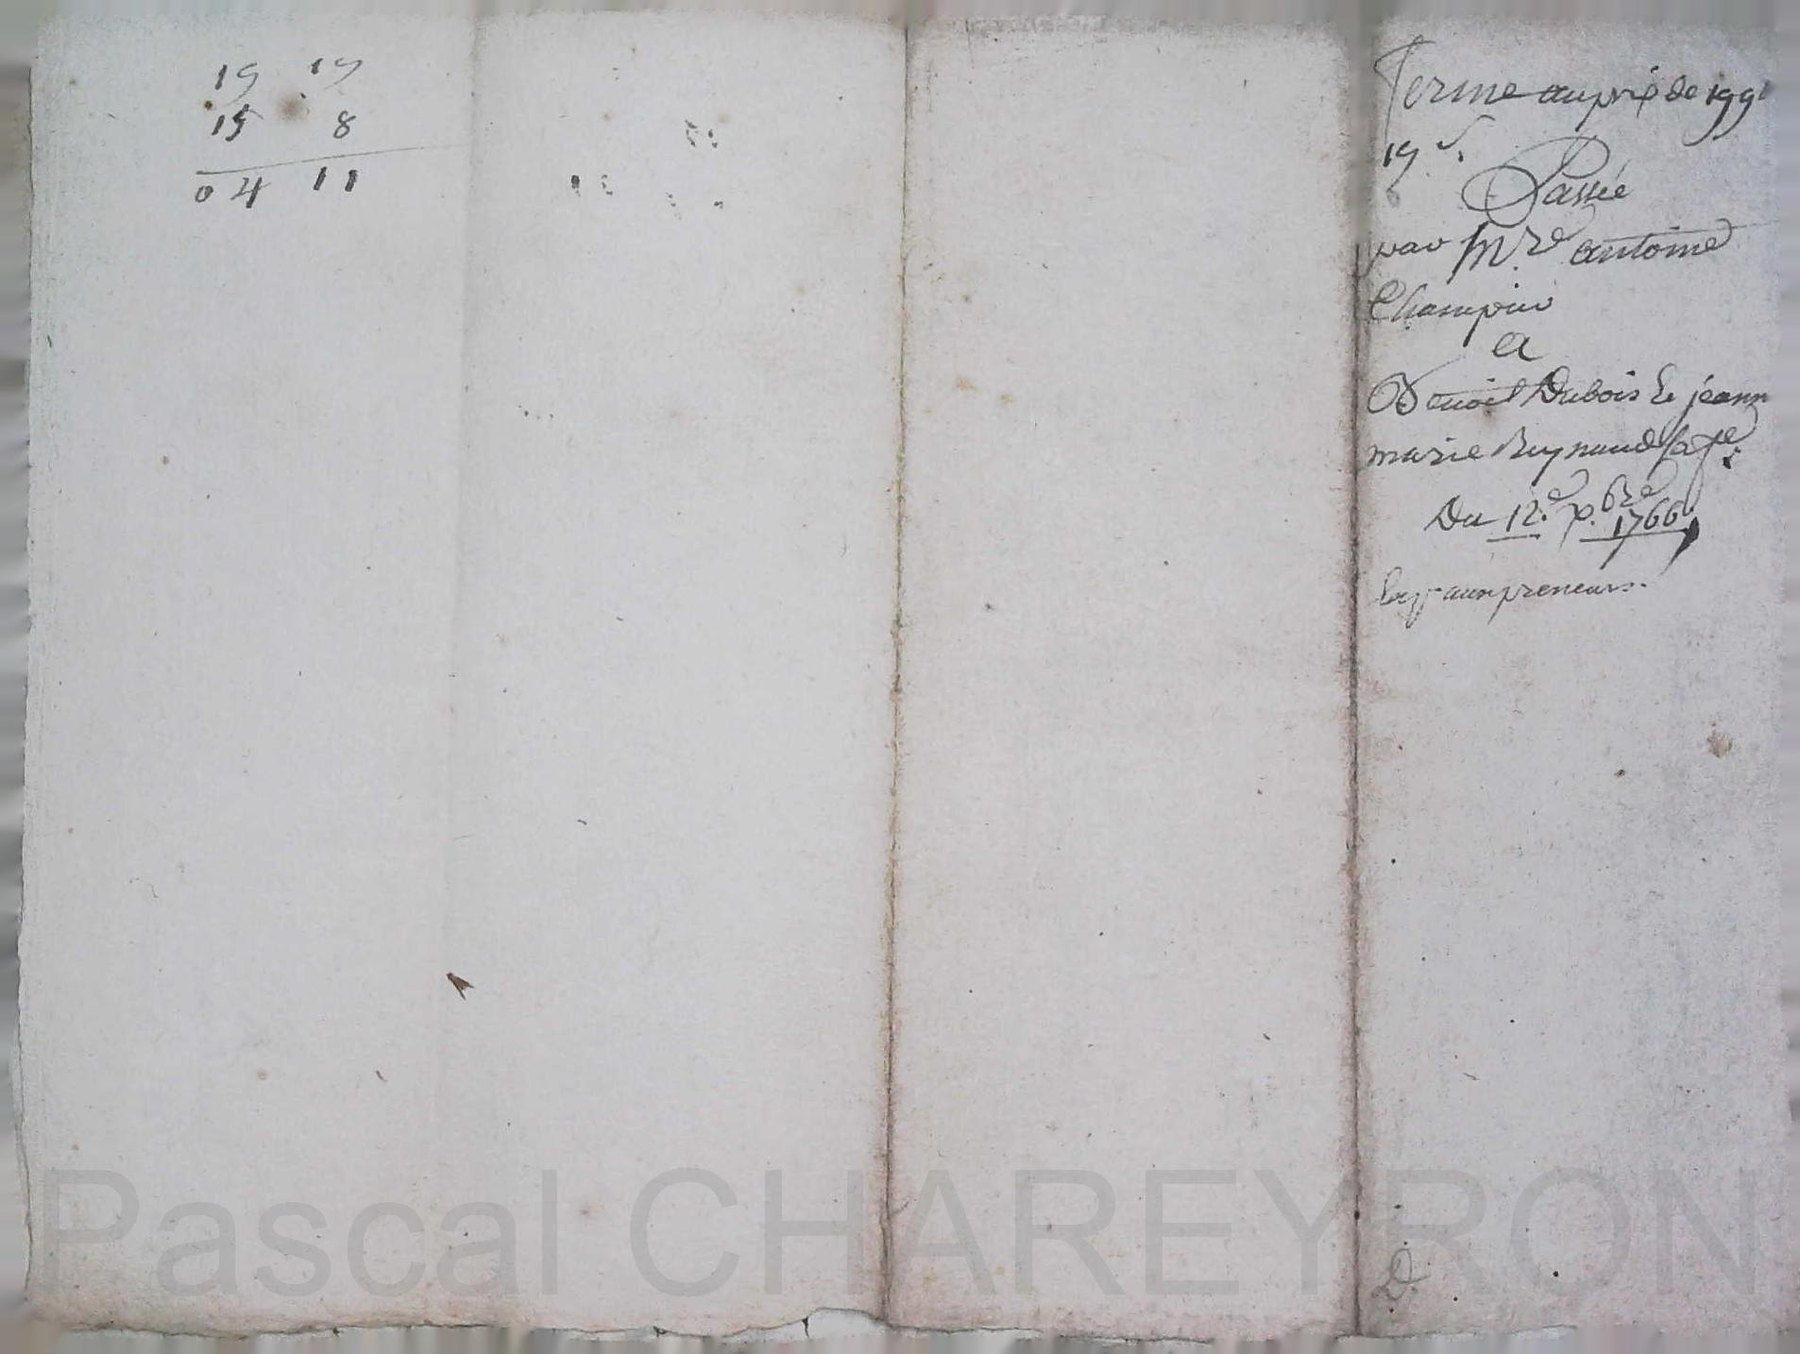 19 19
15 8
04 11
Ferme au prix de 199#
19 s.
Passée
par Mre antoine
Champin
a
Benoit Dubois & jeann
marie Reynaud sa fe
Du 12e 1766
aux preneurs.
D.
Pascal CHAREYRON